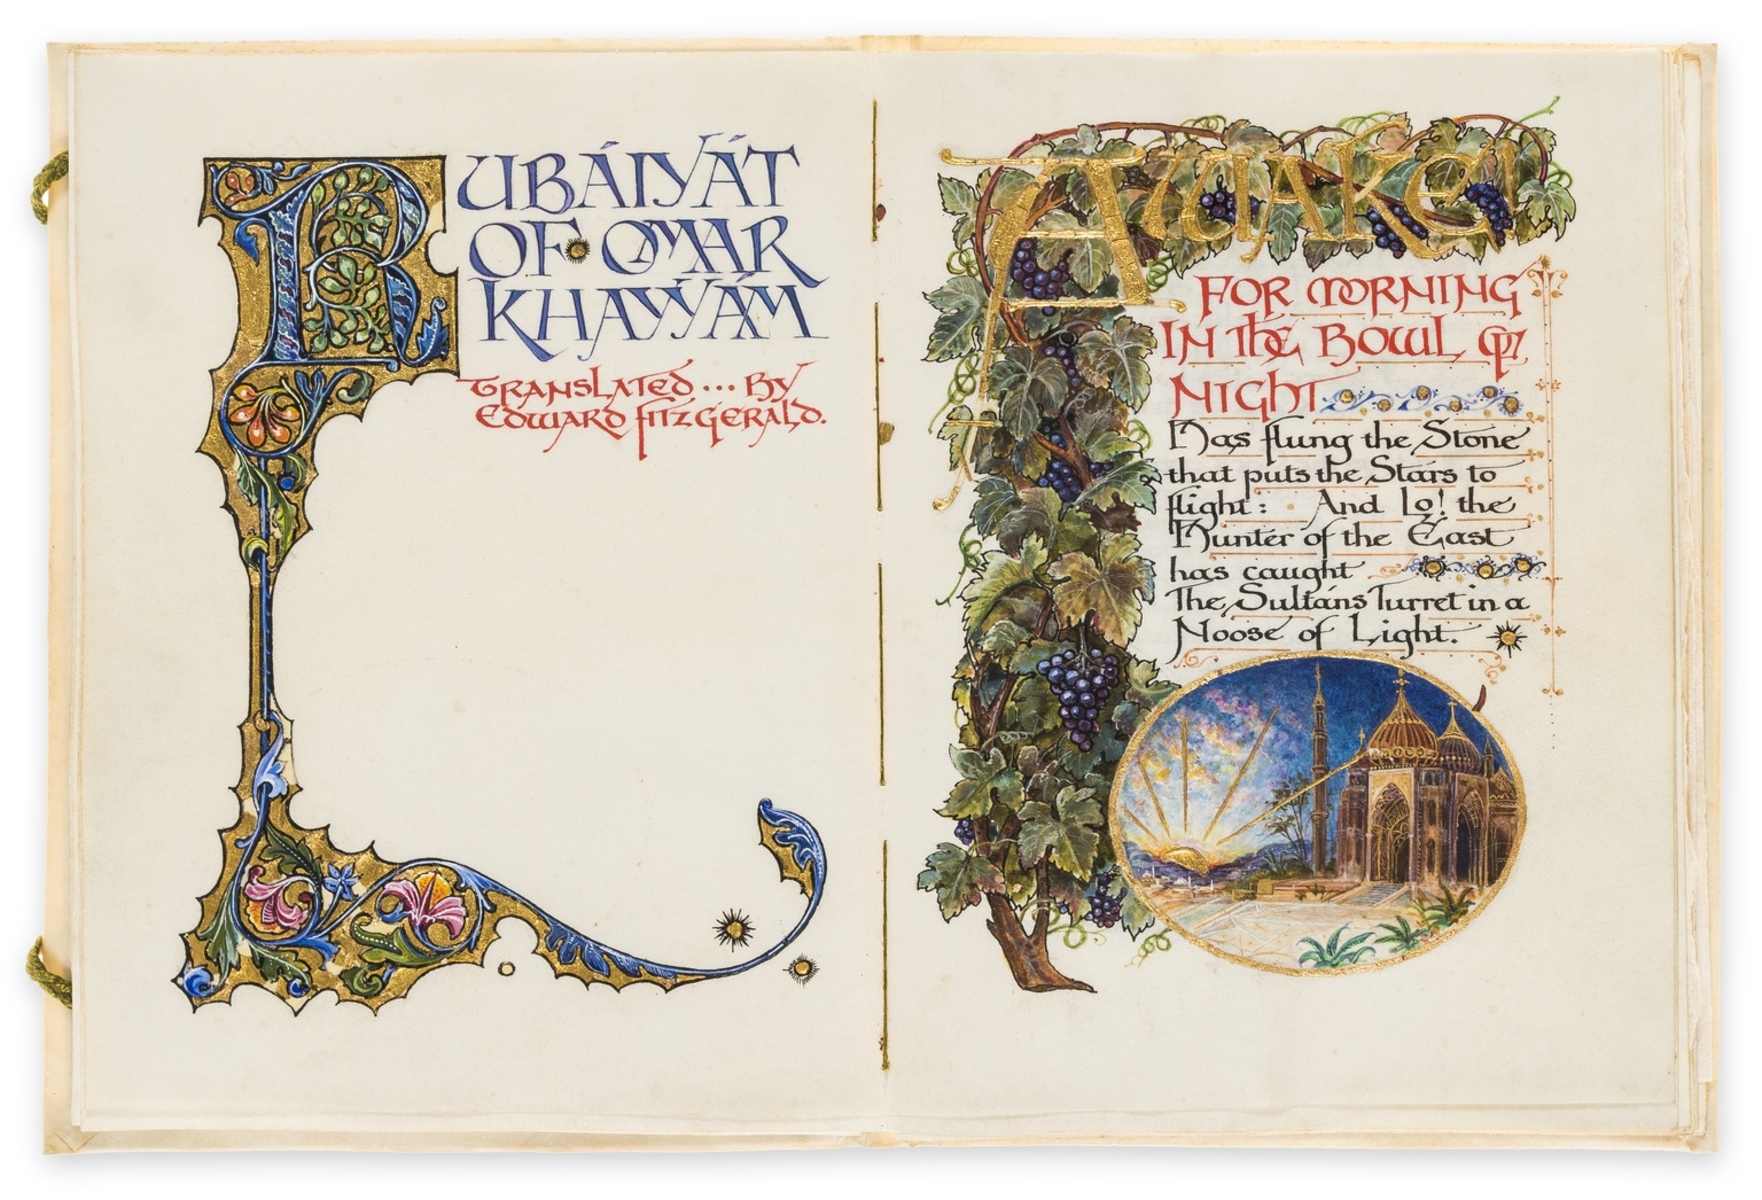 RUBÁIYÁT
OF OMAR
KHAYYÁM
TRANSLATED... BY
EDWARD FITZGERALD.
AWAKE!
FOR MORNING
IN THE BOWL OF
NIGHT
Has flung the Stone
that puts the Stars to
flight: And Lo! the
Hunter of the East
has caught
The Sultán's Turret in a
Noose of Light.